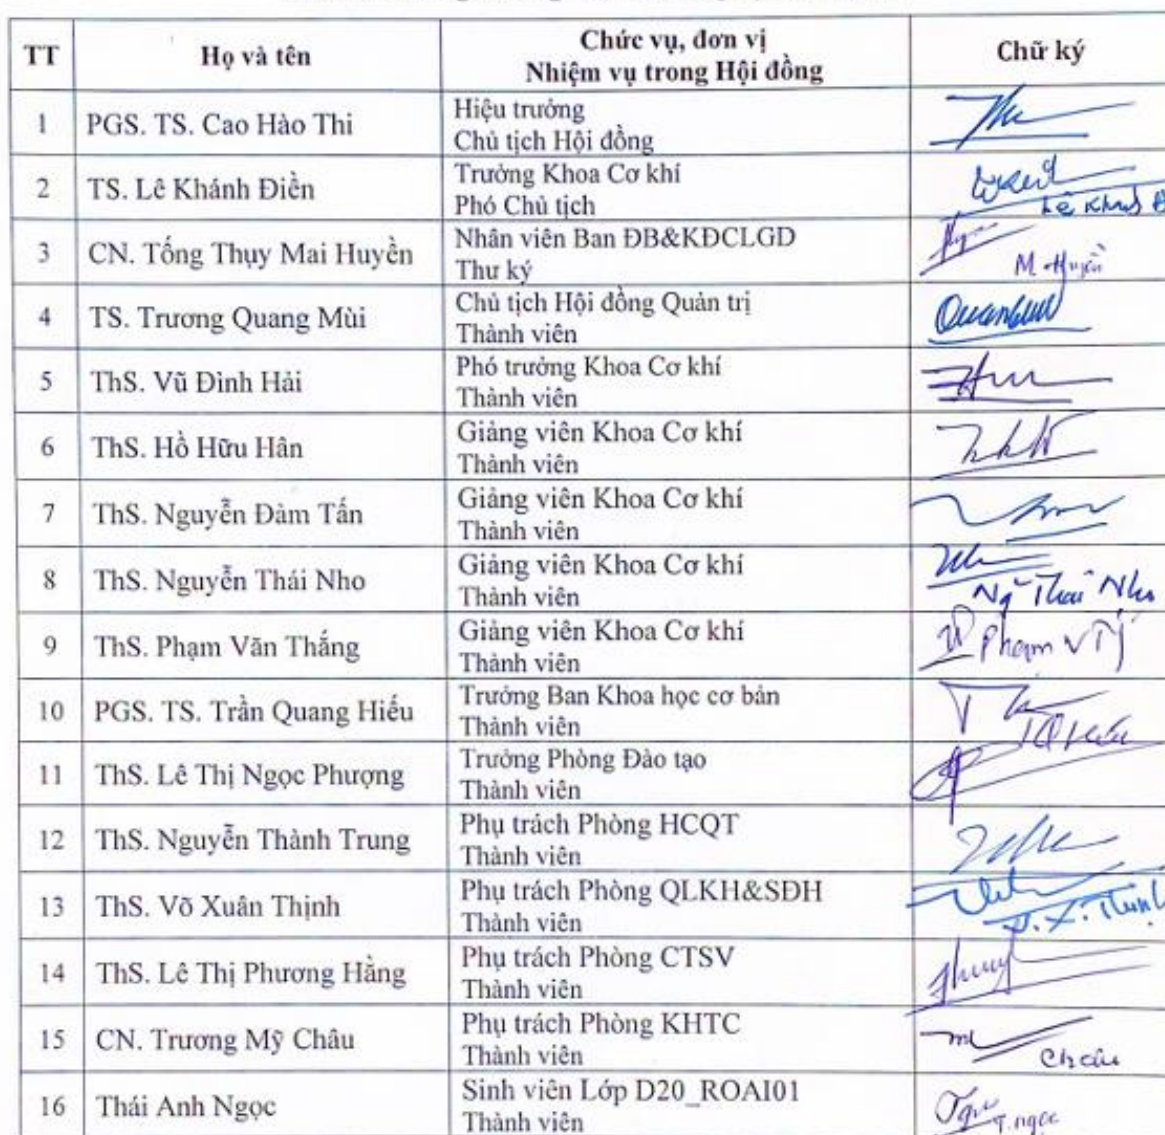 TT Họ và tên Chức vụ, đơn vị Chữ ký
Nhiệm vụ trong Hội đồng
1 PGS. TS. Cao Hào Thi Hiệu trưởng
Chủ tịch Hội đồng
2 TS. Lê Khánh Điền Trưởng Khoa Cơ khí
Phó Chủ tịch
3 CN. Tống Thụy Mai Huyền Nhân viên Ban ĐB&KĐCLGD
Thư ký M. Huyền
4 TS. Trương Quang Mùi Chủ tịch Hội đồng Quản trị
Thành viên
5 ThS. Vũ Đình Hải Phó trưởng Khoa Cơ khí
Thành viên
6 ThS. Hồ Hữu Hân Giảng viên Khoa Cơ khí
Thành viên
7 ThS. Nguyễn Đảm Tấn Giảng viên Khoa Cơ khí
Thành viên
8 ThS. Nguyễn Thái Nho Giảng viên Khoa Cơ khí
Thành viên Ng Thái Nho
9 ThS. Phạm Văn Thắng Giảng viên Khoa Cơ khí
Thành viên
10 PGS. TS. Trần Quang Hiếu Trưởng Ban Khoa học cơ bản
Thành viên
11 ThS. Lê Thị Ngọc Phượng Trưởng Phòng Đào tạo
Thành viên
12 ThS. Nguyễn Thành Trung Phụ trách Phòng HCQT
Thành viên
13 ThS. Võ Xuân Thịnh Phụ trách Phòng QLKH&SĐH
Thành viên V. X. Thịnh
14 ThS. Lê Thị Phương Hằng Phụ trách Phòng CTSV
Thành viên
15 CN. Trương Mỹ Châu Phụ trách Phòng KHTC
Thành viên Châu
16 Thái Anh Ngọc Sinh viên Lớp D20_ROAI01
Thành viên T. ngọc